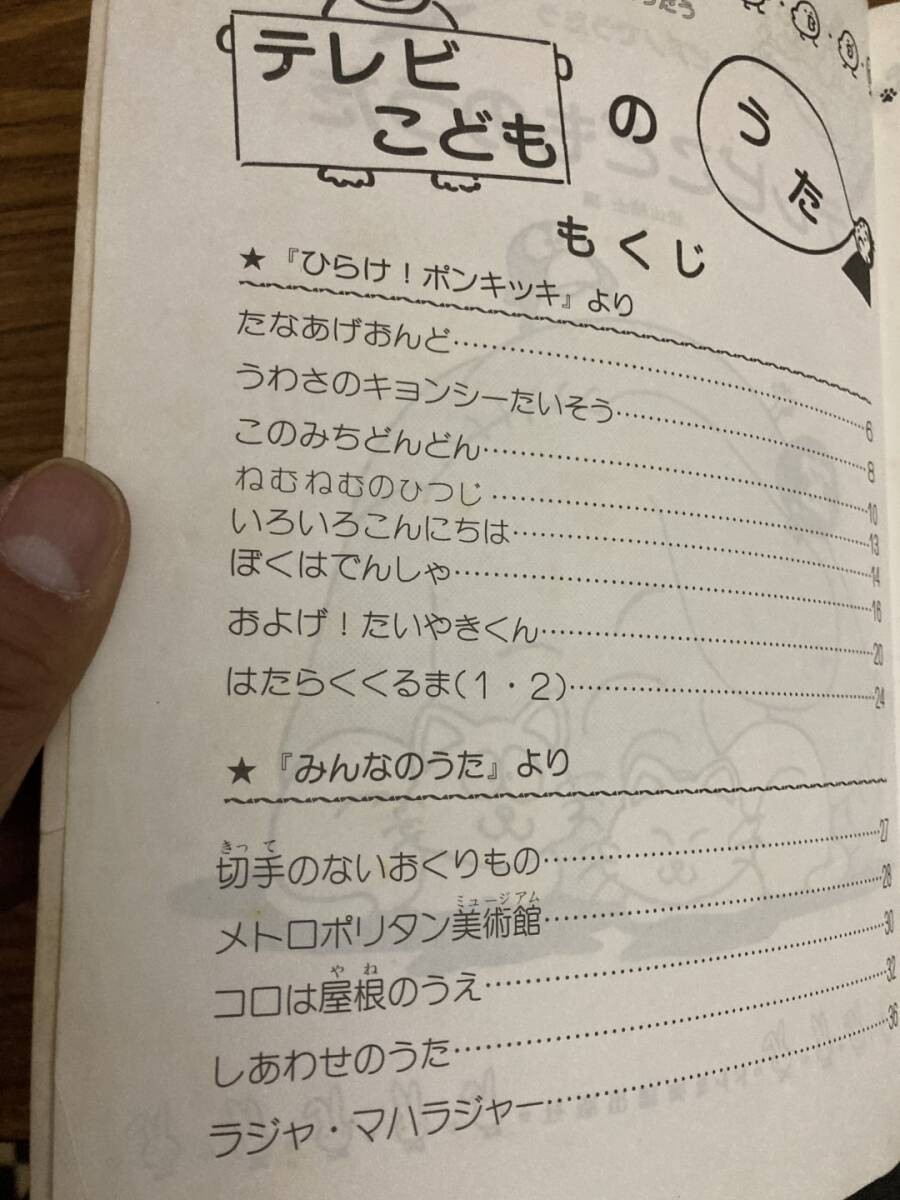 テレビ
こども
の
うた
もくじ
★『ひらけ！ポンキッキ』より
たなあげおんど……………………6
うわさのキョンシーたいそう……………………8
このみちどんどん……………………10
ねむねむのひつじ……………………13
いろいろこんにちは……………………14
ぼくはでんしゃ……………………16
およげ！たいやきくん……………………20
はたらくくるま(1・2)……………………24
★『みんなのうた』より
きって
切手のないおくりもの……………………27
ミュージアム
メトロポリタン美術館……………………28
やね
コロは屋根のうえ……………………30
しあわせのうた……………………32
ラジャ・マハラジャー……………………36